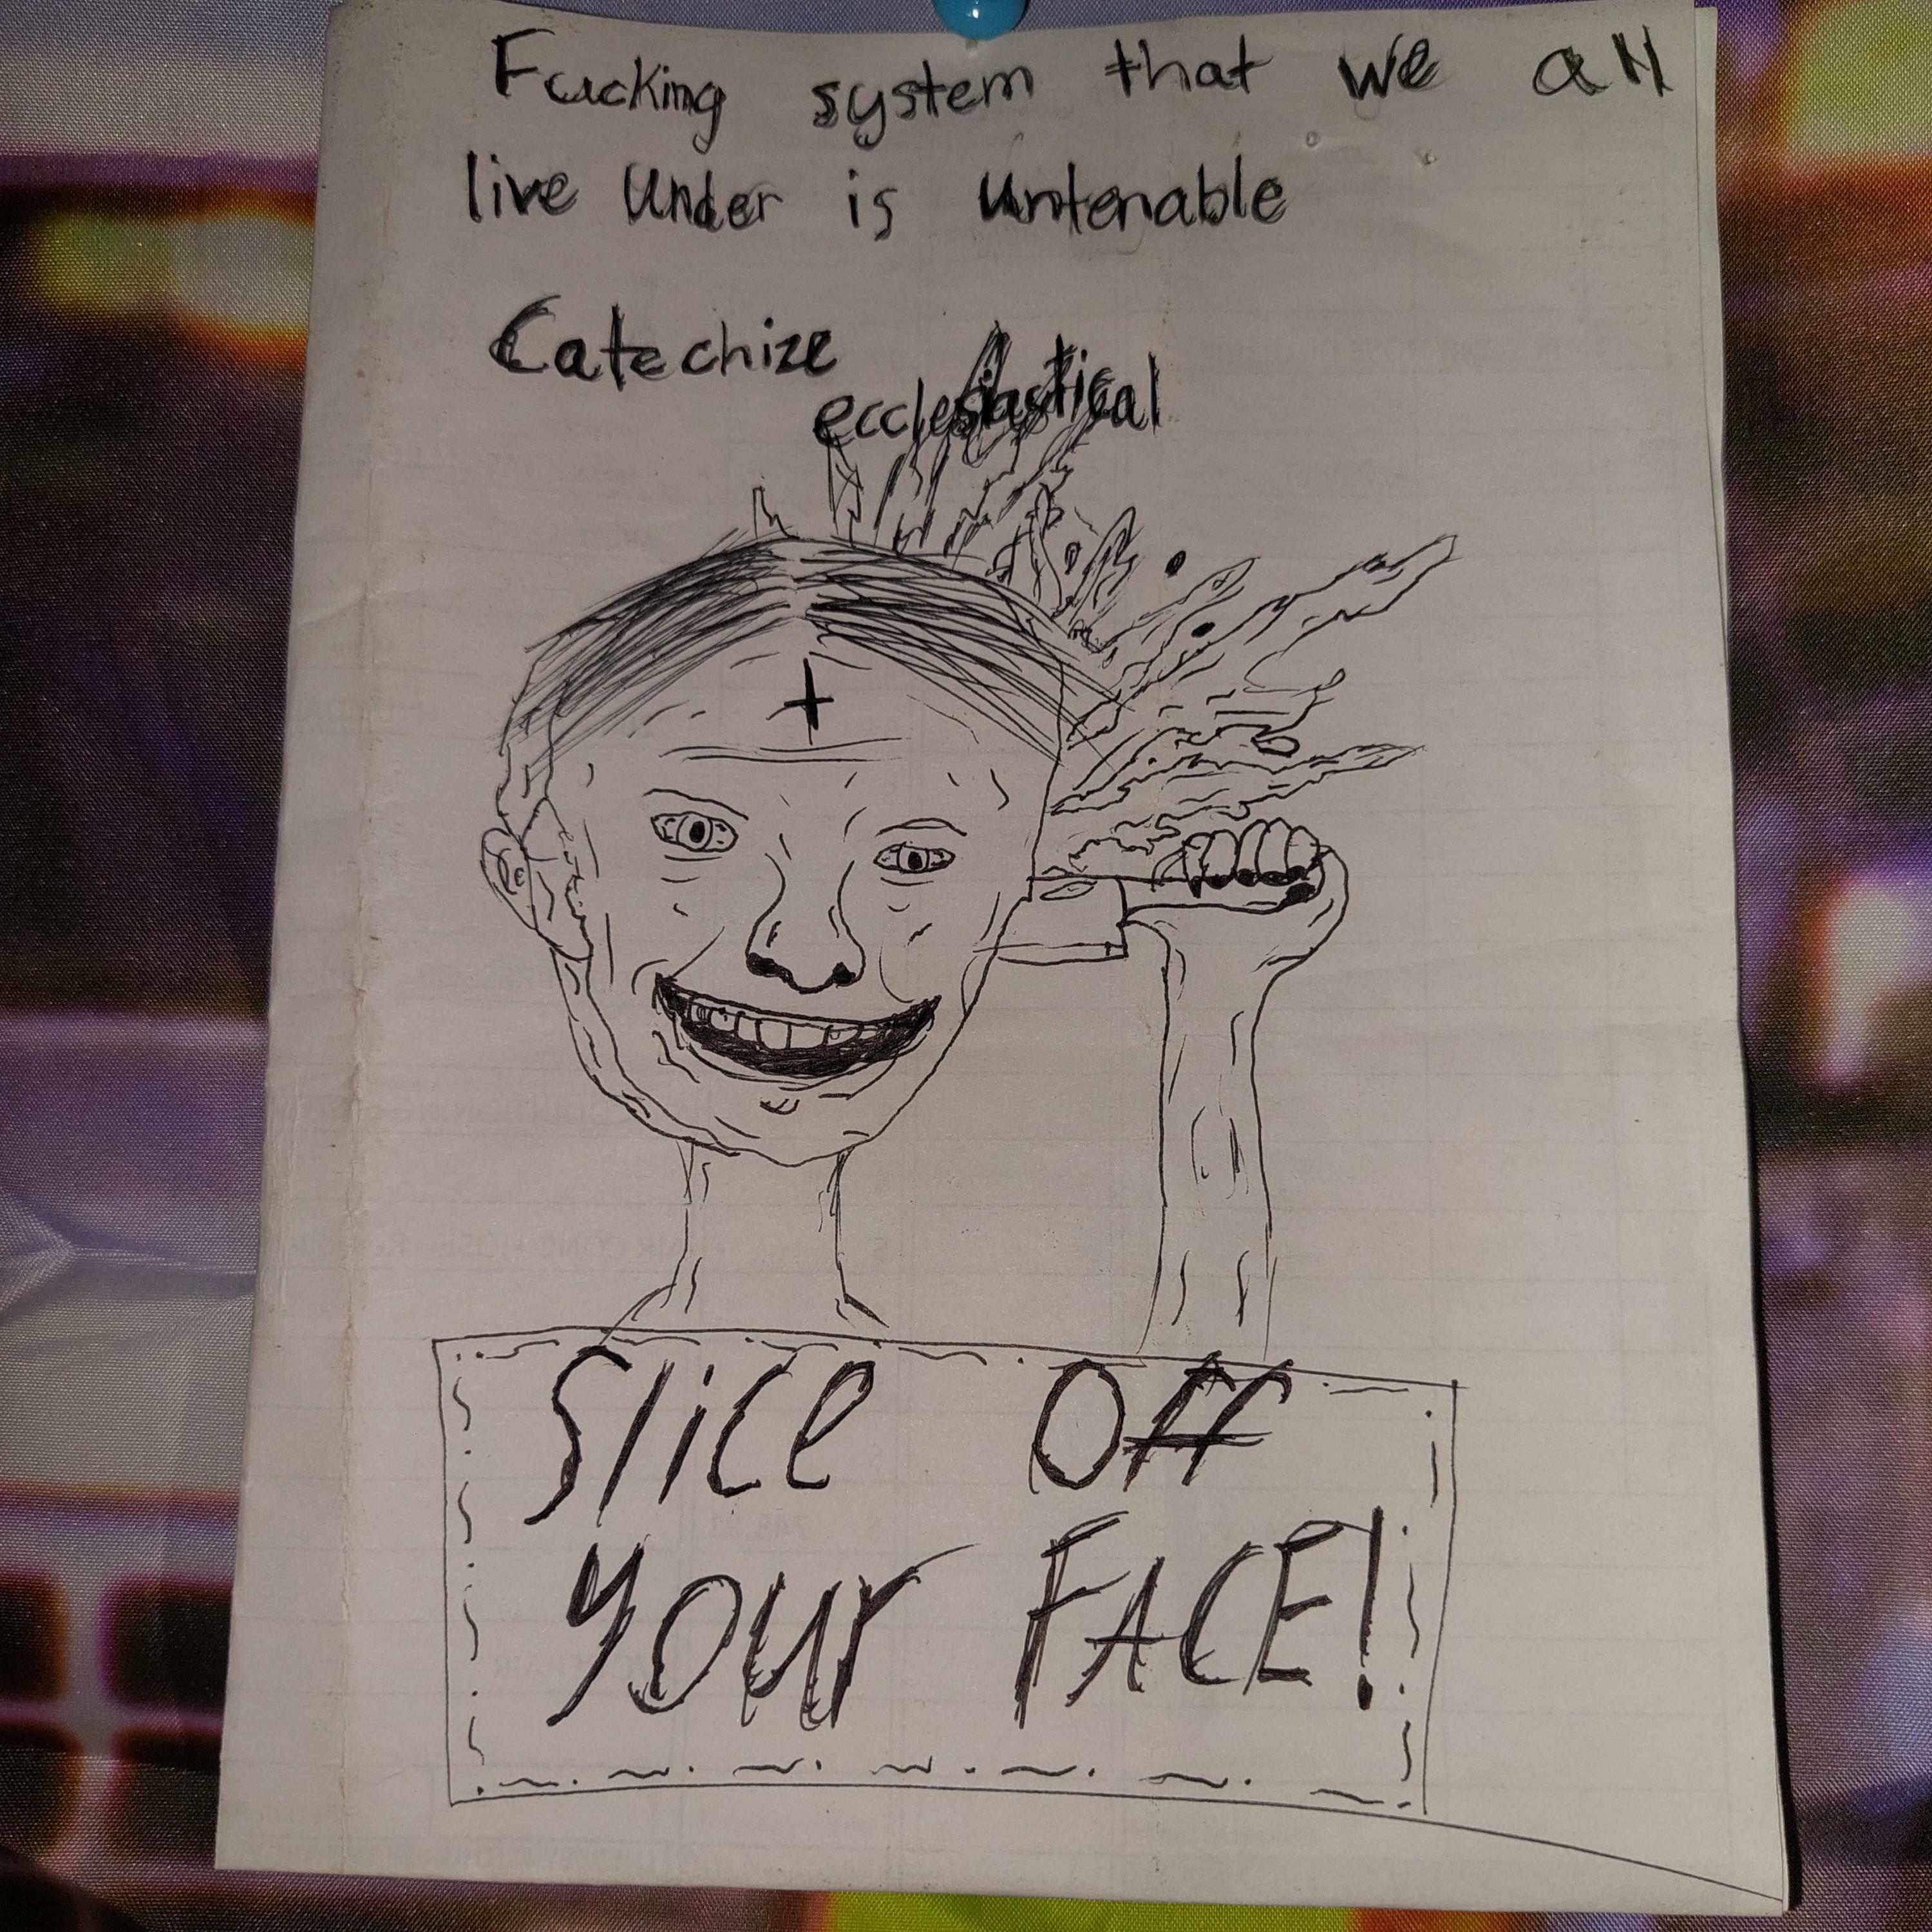 Fucking system that we all
live under is untenable
Catechize
ecclesiastical
Slice Off
Your FACE!